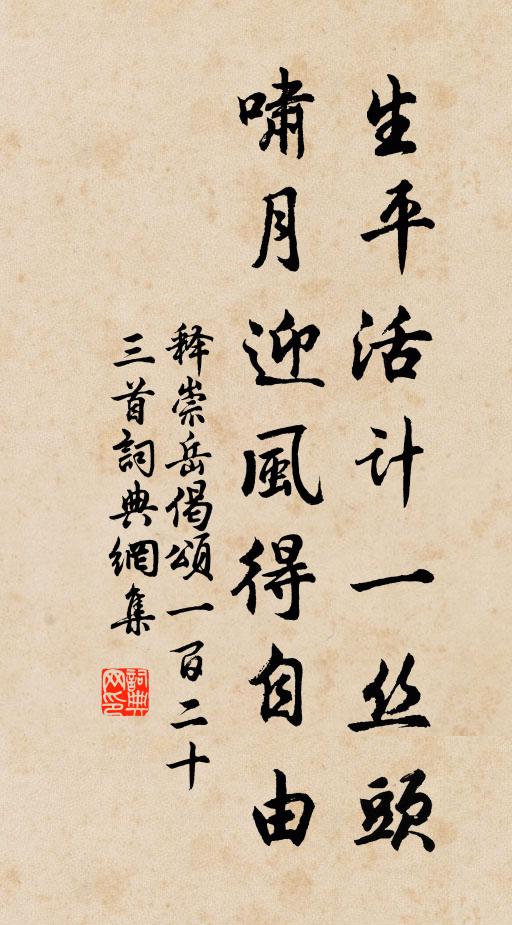 生平活计一丝頭
嘯月迎風得自由
释崇岳偈頌一百二十
三首詞典網集
詞典
网印